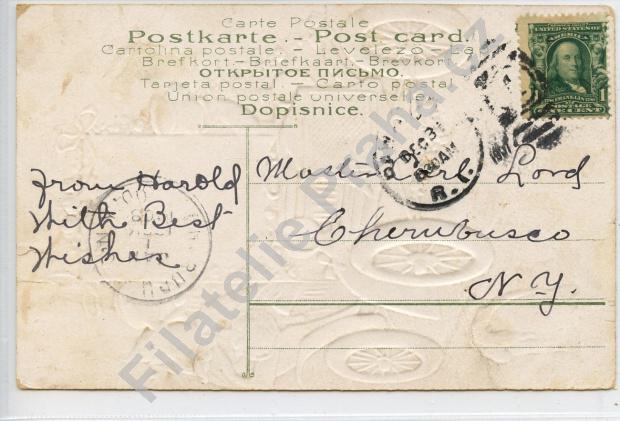 Carte Postale
Postkarte. - Post card.
Cartolina postale. - Levelező-La
Brefkort.-Briefkaart.-Brevkort
ОТКРЫТОЕ ПИСЬМО.
Tarjeta postal. - Carto postal
Union postale universelle.
Dopisnice.
UNITED STATES OF
AMERICA
POSTAGE
ONE CENT
DEC 31
AM
R. I.
from Harold
With Best
Wishes
Master Carl Lord
Cherubusco
N.Y.
Filatelie Praha.cz